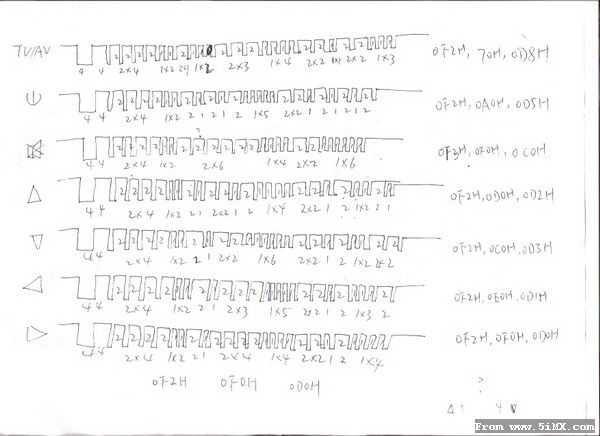 TV/AV
4 4 2x4 1x2 2x1 1x2 2x3 1x4 2x2 1x1 2x2 1x3
0F2H, 70H, 0D8H
4 4 2x4 1x2 2 1 2 1 2 1x5 2x2 1 2 1 2 1 2
0F2H, 0A0H, 0D5H
4 4 2x4 1x2 2x6 1x4 2x2 1x6
0F3H, 0F0H, 0C0H
4 4 2x4 1x2 2 1 2x2 1 2 1x4 2x2 1 2 1x2 2 1
0F2H, 0D0H, 0D2H
4 4 2x4 1x2 2x2 1x6 2x2 1 2 1x2 2x2
0F2H, 0C0H, 0D3H
4 4 2x4 1x2 2 1 2x3 1x5 2x2 1 2 1x3 2
0F2H, 0F0H, 0D1H
4 4 2x4 1x2 2 1 2x4 1x4 2x2 1 2 1x4
0F2H, 0F0H, 0D0H
0F2H 0F0H 0D0H
From www.5iMX.com